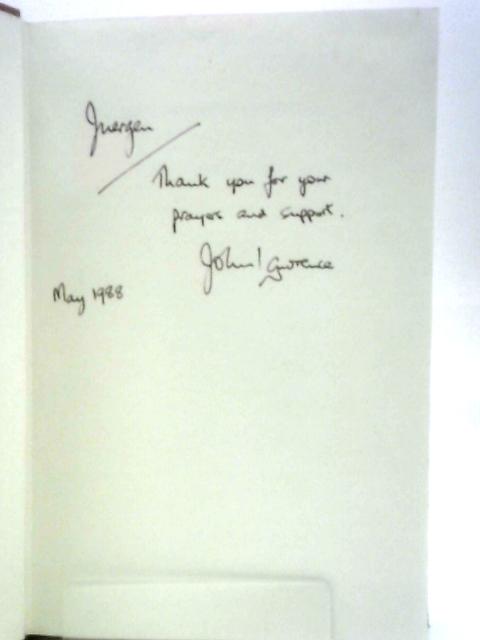 Juergen
Thank you for your
prayers and support.
John Lawrence
May 1988